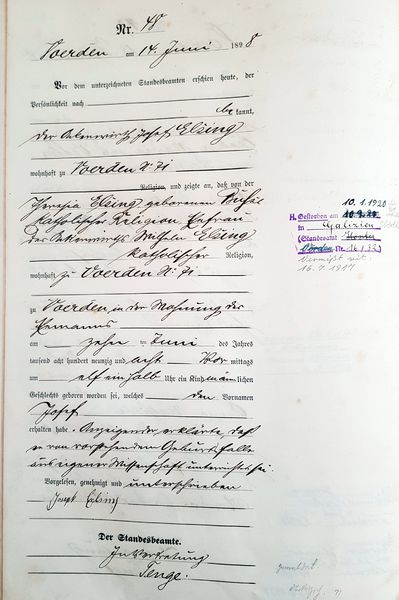 Nr. 48
Voerden am 14. Juni 1898
Vor dem unterzeichneten Standesbeamten erschien heute, der
Persönlichkeit nach
be kannt,
der Ackerwirth Josef Elsing
wohnhaft zu Voerden N:
Religion, und zeigte an, daß von der
Theresia Elsing geborenen
katholischer Religion Ehefrau
des Ackerwirths Wilhelm Elsing
katholischer Religion,
wohnhaft zu Voerden N:
zu Voerden in der Wohnung des
Ehemanns
am zehn ten Juni des Jahres
tausend acht hundert neunzig und acht Vor mittags
um elf ein halb Uhr ein Kind männlichen
Geschlechts geboren worden sei, welches den Vornamen
Josef
erhalten habe. Anzeigender erklärte, daß
er von vorstehendem Geburtsfalle
aus eigener Wissenschaft unterrichtet sei.
Vorgelesen, genehmigt und unterschrieben
Joseph Elsing
Der Standesbeamte.
In Vertretung
Tenge.
10.1.1920
H. Gestorben am
in Galizien
(Standesamt Höxter
Vörden Nr. 16/
Vermißt seit
16.7.1917